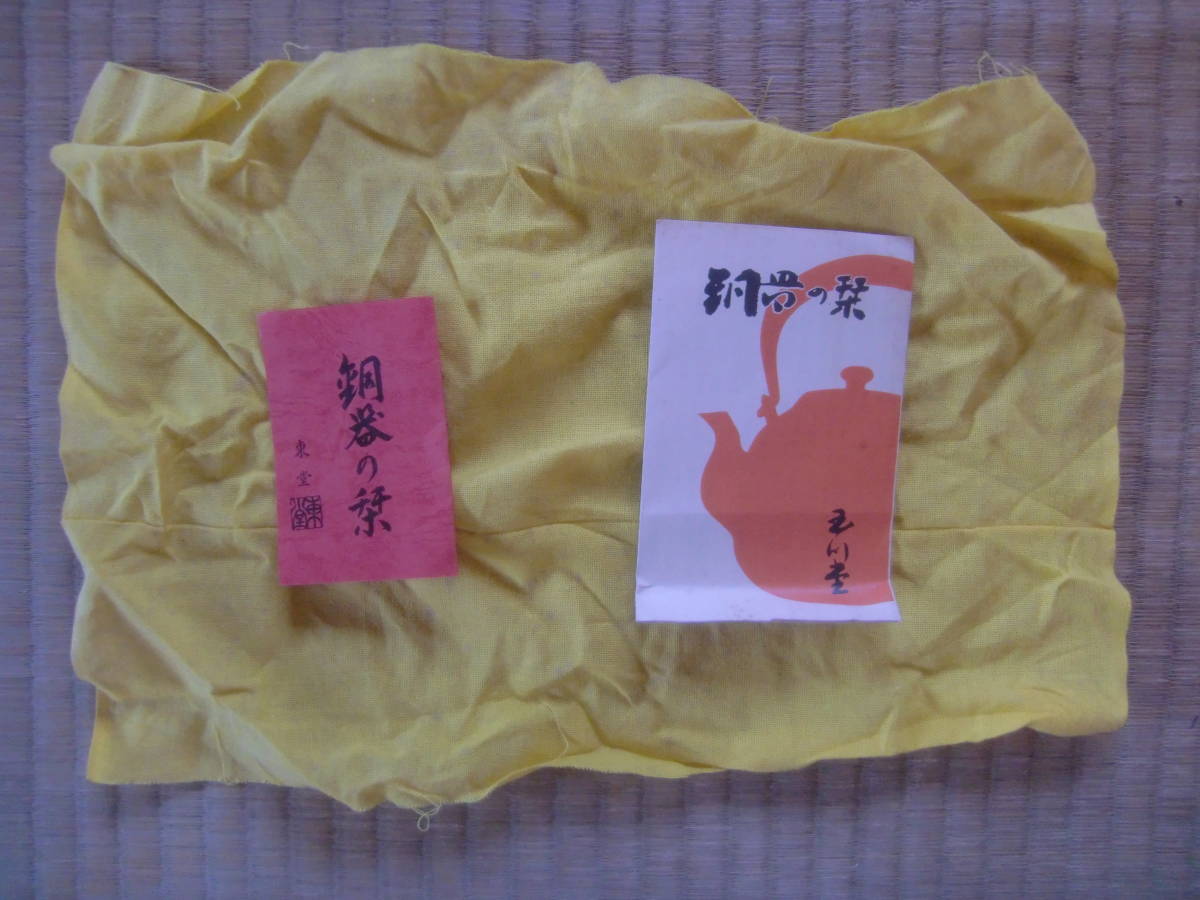 銅器の栞
東堂
東堂
銅器の栞
玉川堂